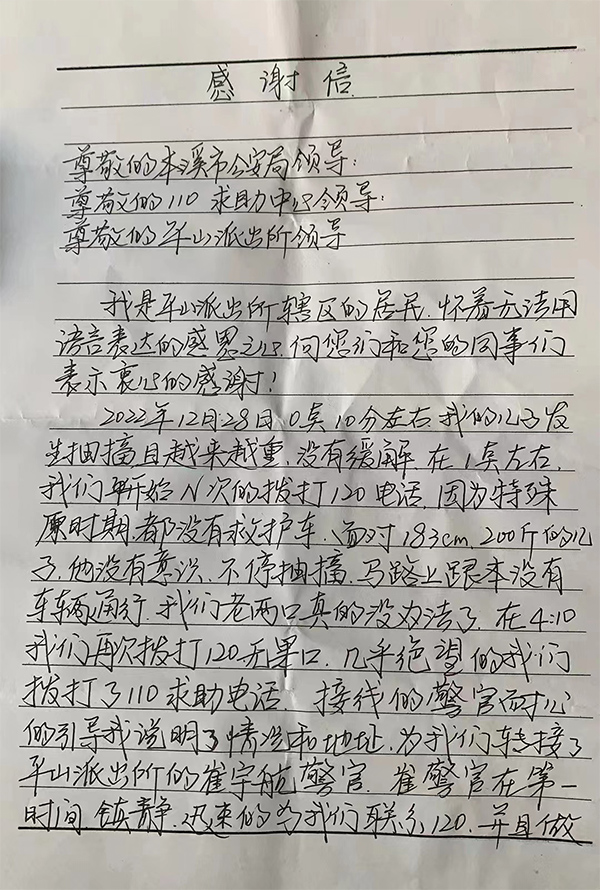 感谢信
尊敬的本溪市公安局领导:
尊敬的110求助中心领导:
尊敬的平山派出所领导
我是平山派出所辖区的居民.怀着无法用
语言表达的感恩之心.向您们和您的同事们
表示衷心的感谢!
2022年12月28日0点10分左右.我的儿子发
生抽搐且越来越重.没有缓解.在1点左右.
我们开始N次的拨打120电话.因为特殊
原时期.都没有救护车.面对183cm.200斤的儿
子.他没有意识、不停抽搐.马路上跟本没有
车辆通行.我们老两口真的没办法了.在4:10
我们再次拨打120.无果口.几乎绝望的我们
拨打了110求助电话.接线的警官耐心
的引导我说明了情况和地址.为我们转接了
平山派出所的崔宇航警官.崔警官在第一
时间.镇静.迅速的为我们联系120.并且做